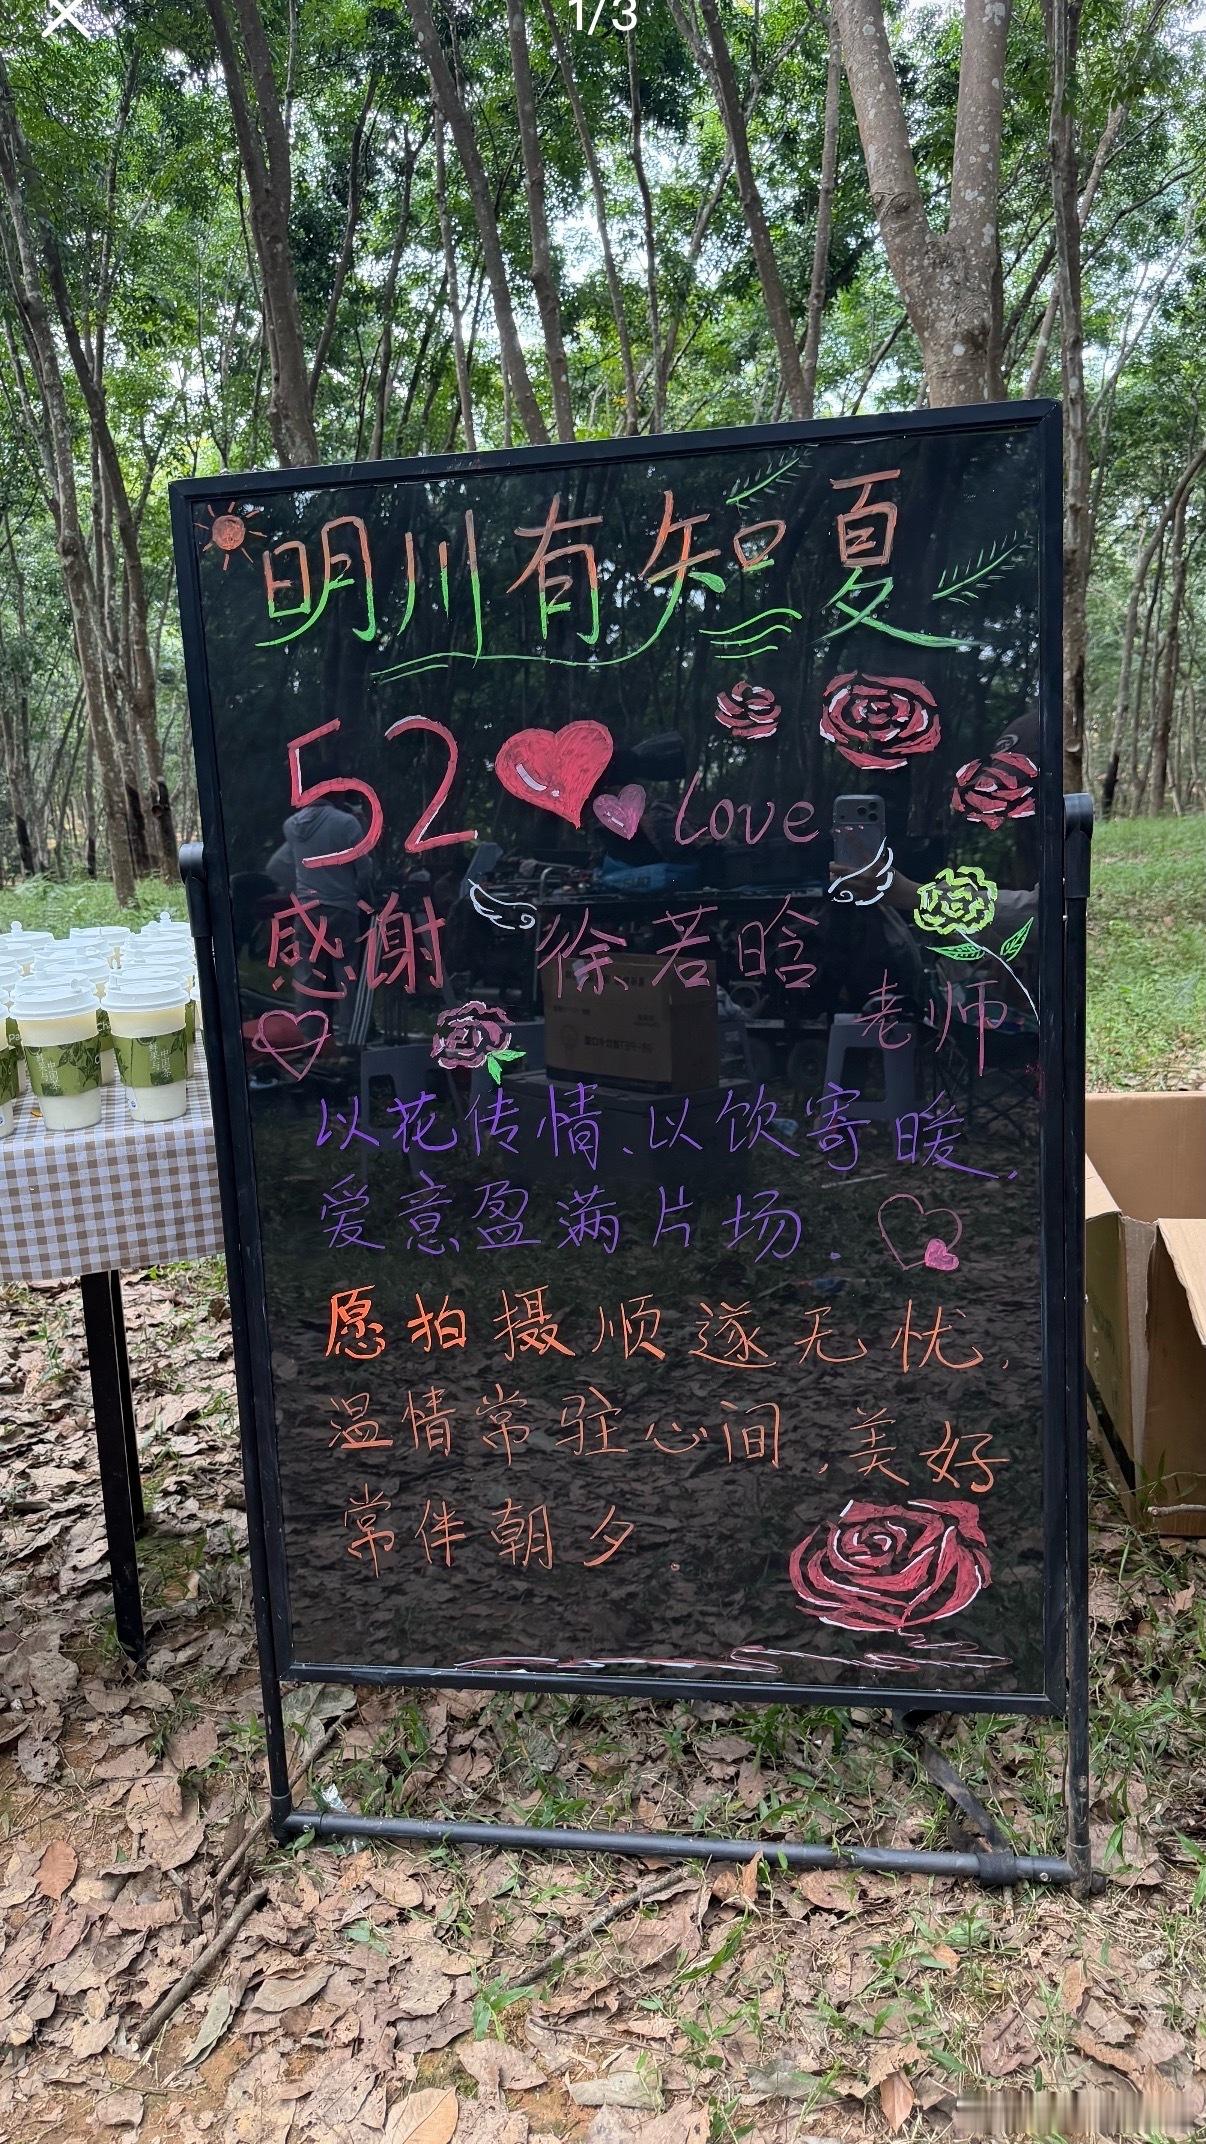 1/3
明川有知夏
52
Love
感谢 徐若晗
老师
以花传情、以饮寄暖,
爱意盈满片场.
愿拍摄顺遂无忧,
温情常驻心间,美好
常伴朝夕.